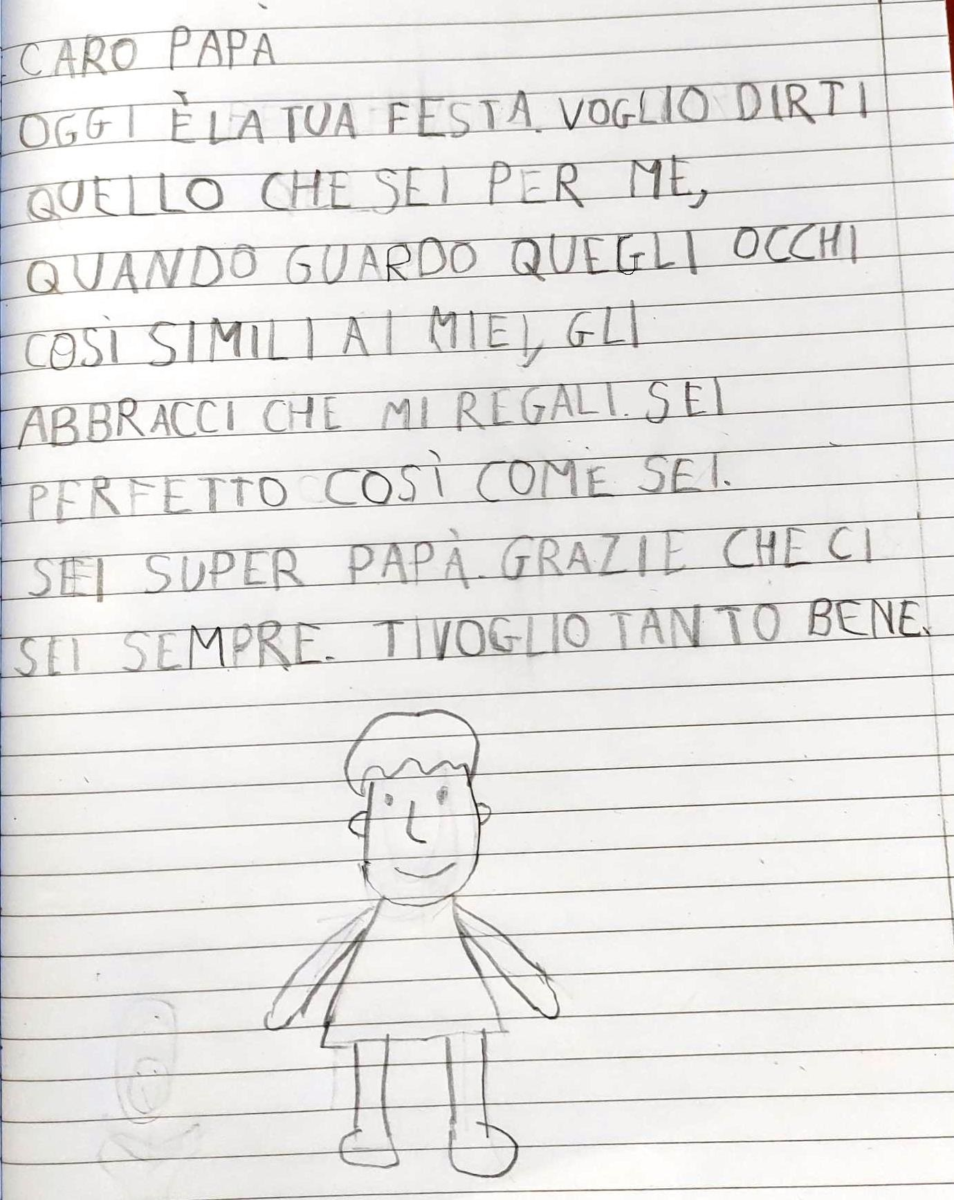 CARO PAPÀ
OGGI È LA TUA FESTA. VOGLIO DIRTI
QUELLO CHE SEI PER ME,
QUANDO GUARDO QUEGLI OCCHI
COSÌ SIMILI AI MIEI, GLI
ABBRACCI CHE MI REGALI. SEI
PERFETTO COSÌ COME SEI.
SEI SUPER PAPÀ. GRAZIE CHE CI
SEI SEMPRE. TI VOGLIO TANTO BENE.